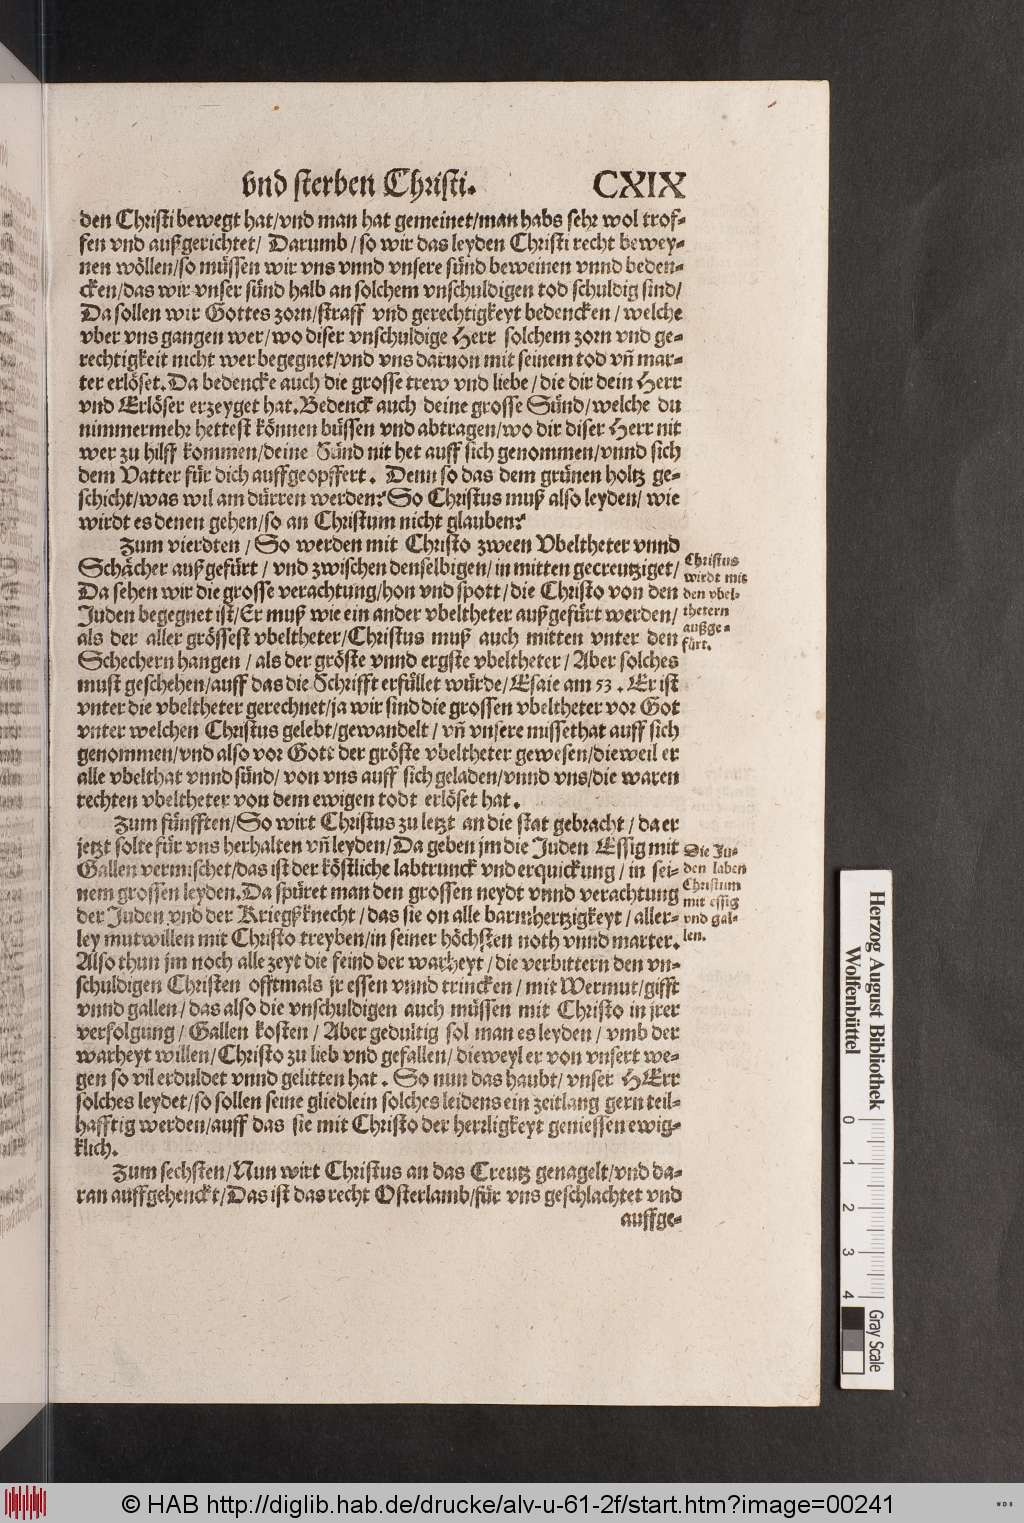 vnd sterben Christi.
CXIX
den Christi bewegt hat/vnd man hat gemeinet/man habs sehr wol trof-
fen vnd außgerichtet/ Darumb/so wir das leyden Christi recht bewey-
nen wöllen/so müssen wir vns vnnd vnsere sünd beweinen vnnd beden-
cken/das wir vnser sünd halb an solchem vnschuldigen tod schuldig sind/
Da sollen wir Gottes zorn/straff vnd gerechtigkeyt bedencken/welche
vber vns gangen wer/wo diser vnschuldige Herr solchem zorn vnd ge-
rechtigkeit nicht wer begegnet/vnd vns daruon mit seinem tod vn̄ mar-
ter erlöset. Da bedencke auch die grosse trew vnd liebe/die dir dein Herr
vnd Erlöser erzeyget hat. Bedenck auch deine grosse Sünd/welche du
nimmermehr hettest können büssen vnd abtragen/wo dir diser Herr nit
wer zu hilff kommen/deine Sünd nit het auff sich genommen/vnnd sich
dem Vatter für dich auffgeopffert. Denn so das dem grünen holtz ge-
schicht/was wil am dürren werden? So Christus muß also leyden/wie
wirdt es denen gehen/so an Christum nicht glauben?
Zum vierdten/So werden mit Christo zween Vbeltheter vnnd
Schächer außgefürt/vnd zwischen denselbigen/in mitten gecreutziget/
Da sehen wir die grosse verachtung/hon vnd spott/die Christo von den
Juden begegnet ist/Er muß wie ein ander vbeltheter außgefürt werden/
als der aller grössest vbeltheter/Christus muß auch mitten vnter den
Schechern hangen/als der gröste vnnd ergste vbeltheter/Aber solches
must geschehen/auff das die Schrifft erfüllet würde/Esaie am 53. Er ist
vnter die vbeltheter gerechnet/ja wir sind die grossen vbeltheter vor Got
vnter welchen Christus gelebt/gewandelt/vn̄ vnsere missethat auff sich
genommen/vnd also vor Gott der gröste vbeltheter gewesen/dieweil er
alle vbelthat vnnd sünd/von vns auff sich geladen/vnnd vns/die waren
rechten vbeltheter von dem ewigen todt erlöset hat.
Christus
wirdt mit
den vbel-
thetern
außge-
fürt.
Zum fünfften/So wirt Christus zu letzt an die stat gebracht/da er
jetzt solte für vns herhalten vn̄ leyden/Da geben jm die Juden Essig mit
Gallen vermischet/das ist der köstliche labtrunck vnd erquickung/in sei-
nem grossen leyden. Da spüret man den grossen neydt vnnd verachtung
der Juden vnd der Kriegßknecht/das sie on alle barmhertzigkeyt/aller-
ley mutwillen mit Christo treyben/in seiner höchsten noth vnnd marter.
Also thun jm noch alle zeyt die feind der warheyt/die verbittern den vn-
schuldigen Christen offtmals jr essen vnnd trincken/mit Wermut/gifft
vnnd gallen/das also die vnschuldigen auch müssen mit Christo in jrer
verfolgung/Gallen kosten/Aber gedultig sol man es leyden/vmb der
warheyt willen/Christo zu lieb vnd gefallen/dieweyl er von vnsert we-
gen so vil erduldet vnnd gelitten hat. So nun das haubt/vnser HErr
solches leydet/so sollen seine gliedlein solches leidens ein zeitlang gern teil-
hafftig werden/auff das sie mit Christo der herrligkeyt geniessen ewig-
klich.
Die Ju-
den laben
Christum
mit essig
vnd gal-
len.
Zum sechsten/Nun wirt Christus an das Creutz genagelt/vnd da-
ran auffgehenckt/Das ist das recht Osterlamb/für vns geschlachtet vnd
auffge-
Herzog August Bibliothek
Wolfenbüttel
0 1 2 3 4
Gray Scale
© HAB http://diglib.hab.de/drucke/alv-u-61-2f/start.htm?image=00241